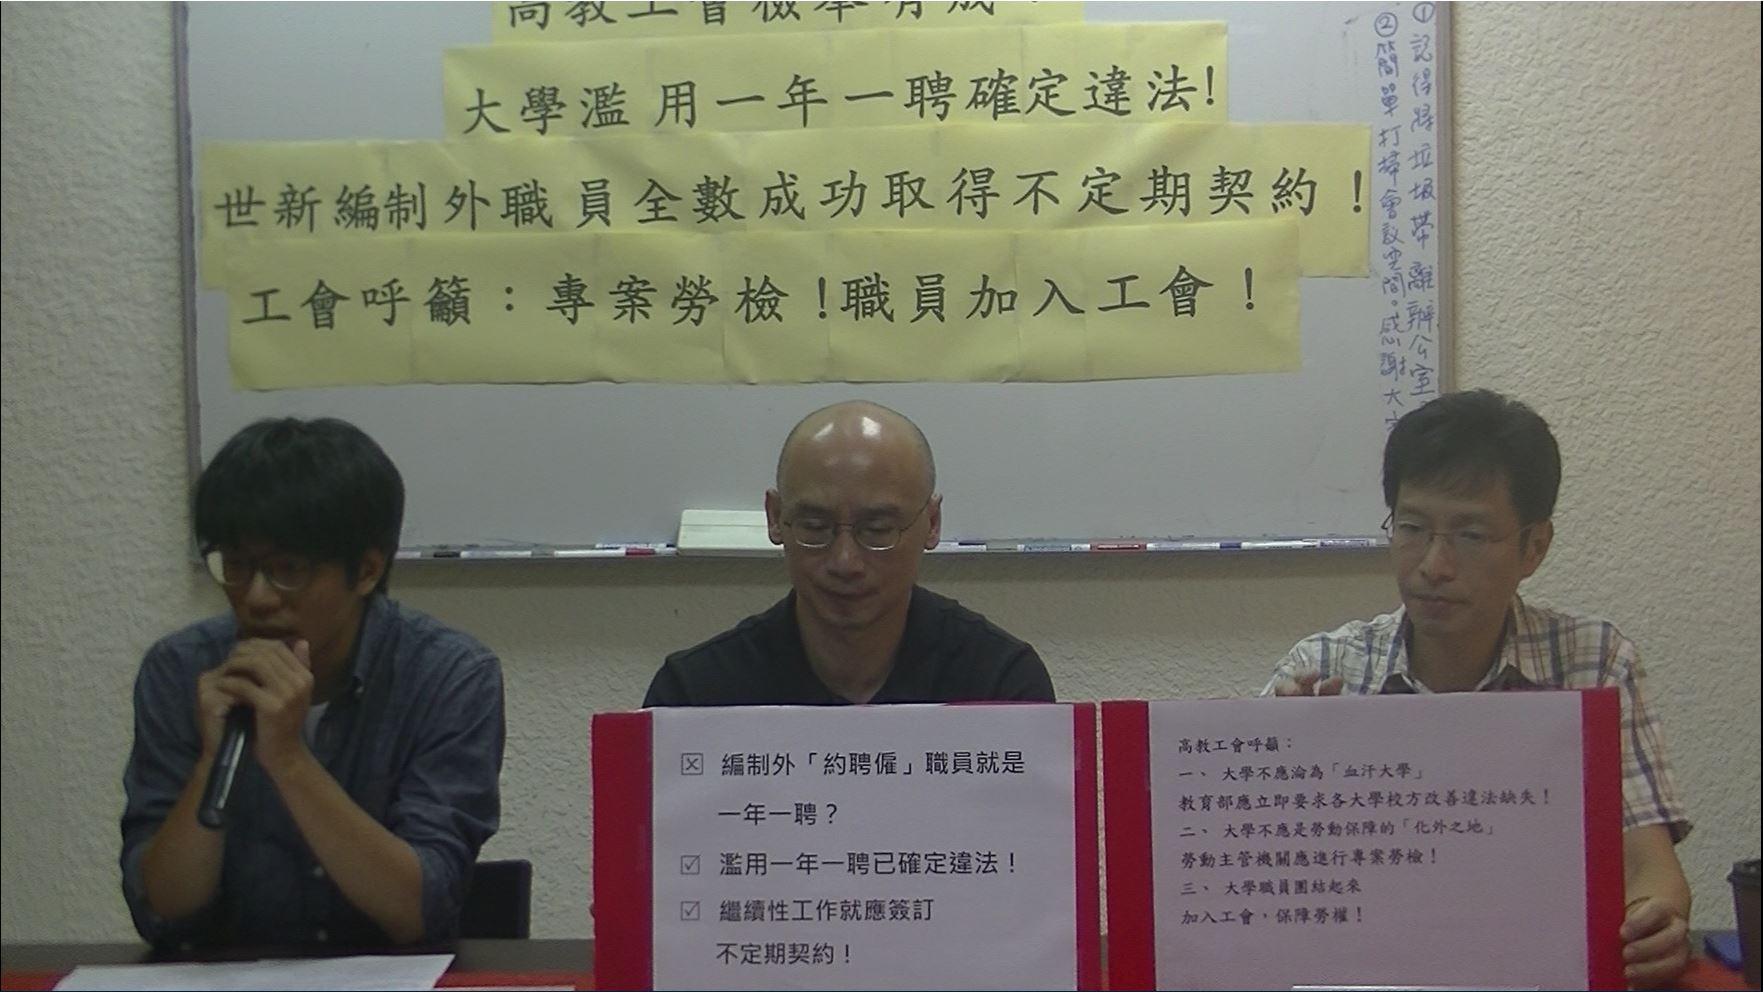 高教工會檢舉有成！
大學濫用一年一聘確定違法!
世新編制外職員全數成功取得不定期契約！
工會呼籲：專案勞檢！職員加入工會！
①記得將垃圾帶離辦公室
②簡單打掃會議空間。感謝大家
☒ 編制外「約聘僱」職員就是
一年一聘？
☑ 濫用一年一聘已確定違法！
☑ 繼續性工作就應簽訂
不定期契約！
高教工會呼籲：
一、 大學不應淪為「血汗大學」
教育部應立即要求各大學校方改善違法缺失！
二、 大學不應是勞動保障的「化外之地」
勞動主管機關應進行專案勞檢！
三、 大學職員團結起來
加入工會，保障勞權！